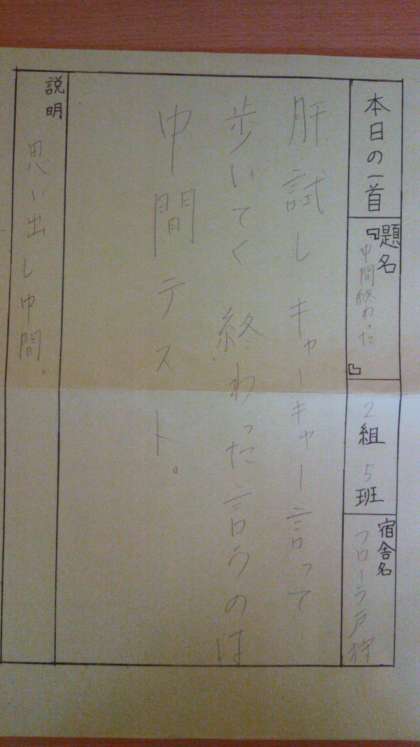 本日の一首
題名
『中間終わった』
2組 5班
宿舎名
フローラ戸狩
肝試しキャーキャー言って
歩いてく 終わった言うのは
中間テスト。
説明
思い出し中間。